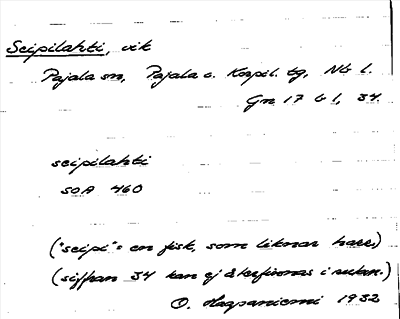 Seipilahti, vik
Pajala sn, Pajala o. Korpil. tg, Nb l.
Gn 17 b 1, 34
seipilahti
SOA 460
("seipi" = en fisk, som liknar harr)
(siffran 34 kan ej återfinnas i rutan.)
O. Haapaniemi 1932